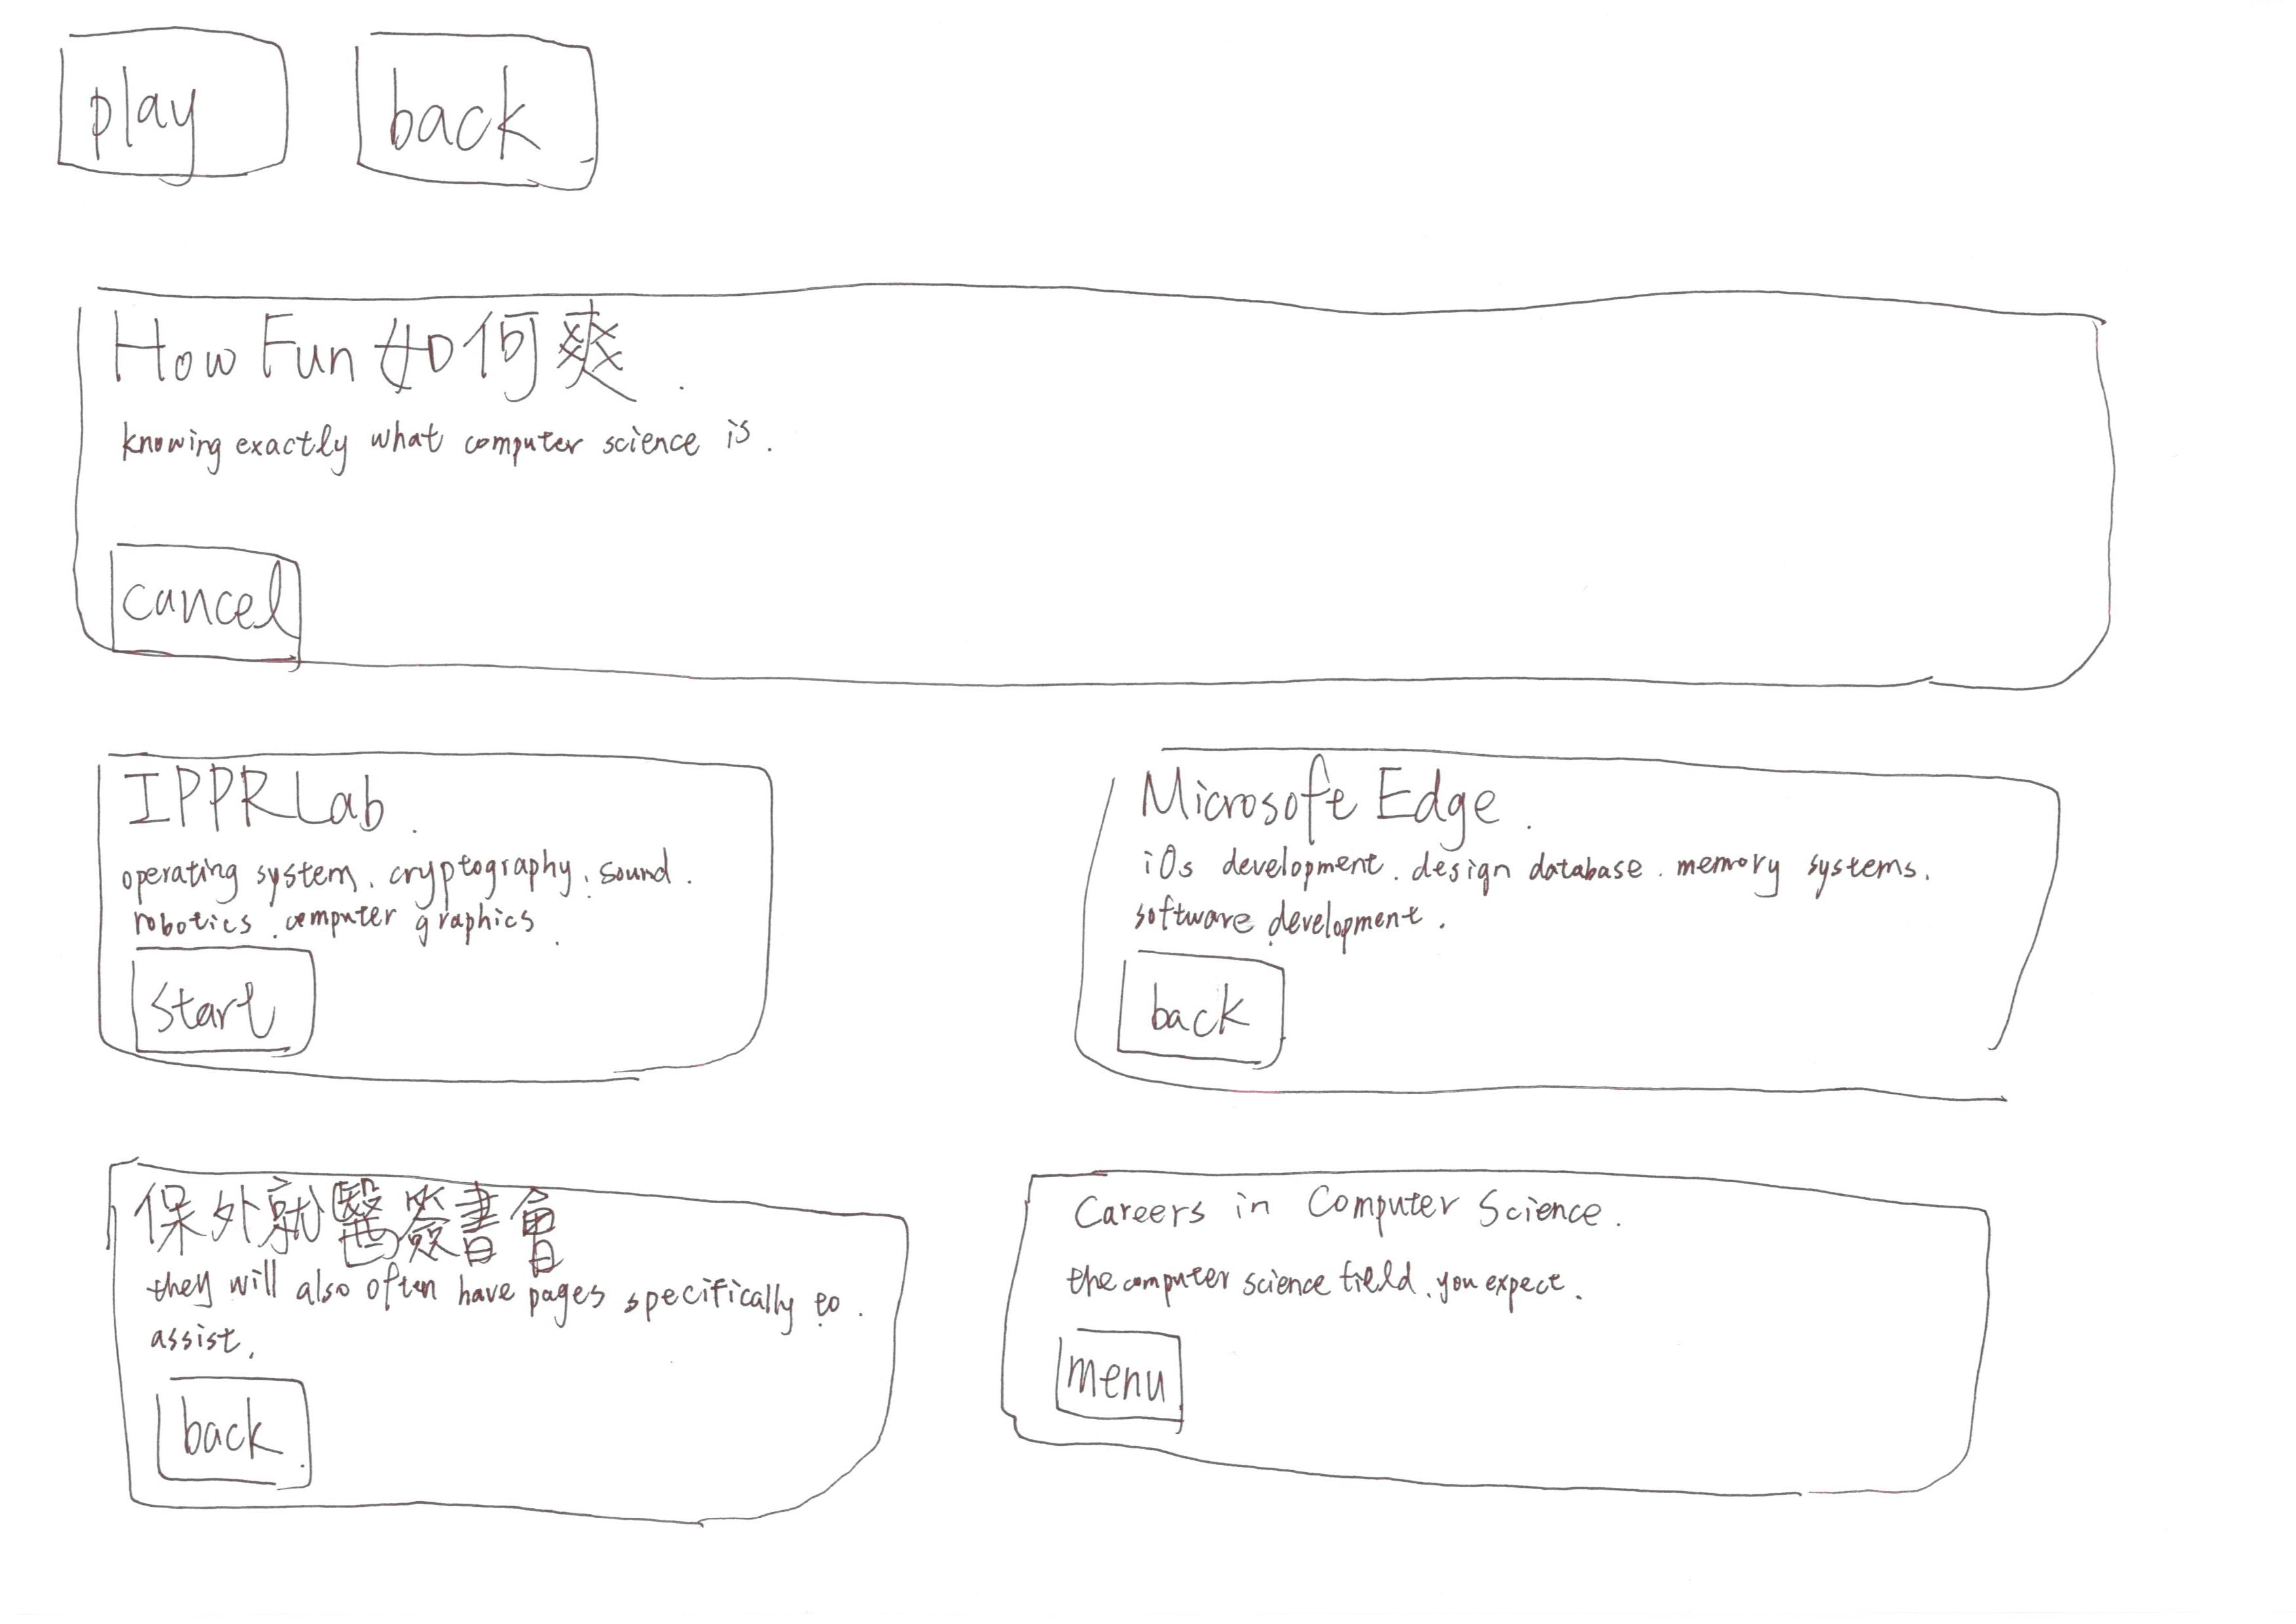 play
back
How Fun 如何爽.
knowing exactly what computer science is.
cancel
IPPR Lab.
operating system, cryptography, sound.
robotics. computer graphics.
start
Microsoft Edge.
iOs development. design database. memory systems.
software development.
back
保外就醫簽書會
they will also often have pages specifically to.
assist.
back
Careers in Computer Science.
the computer science field. you expect.
menu